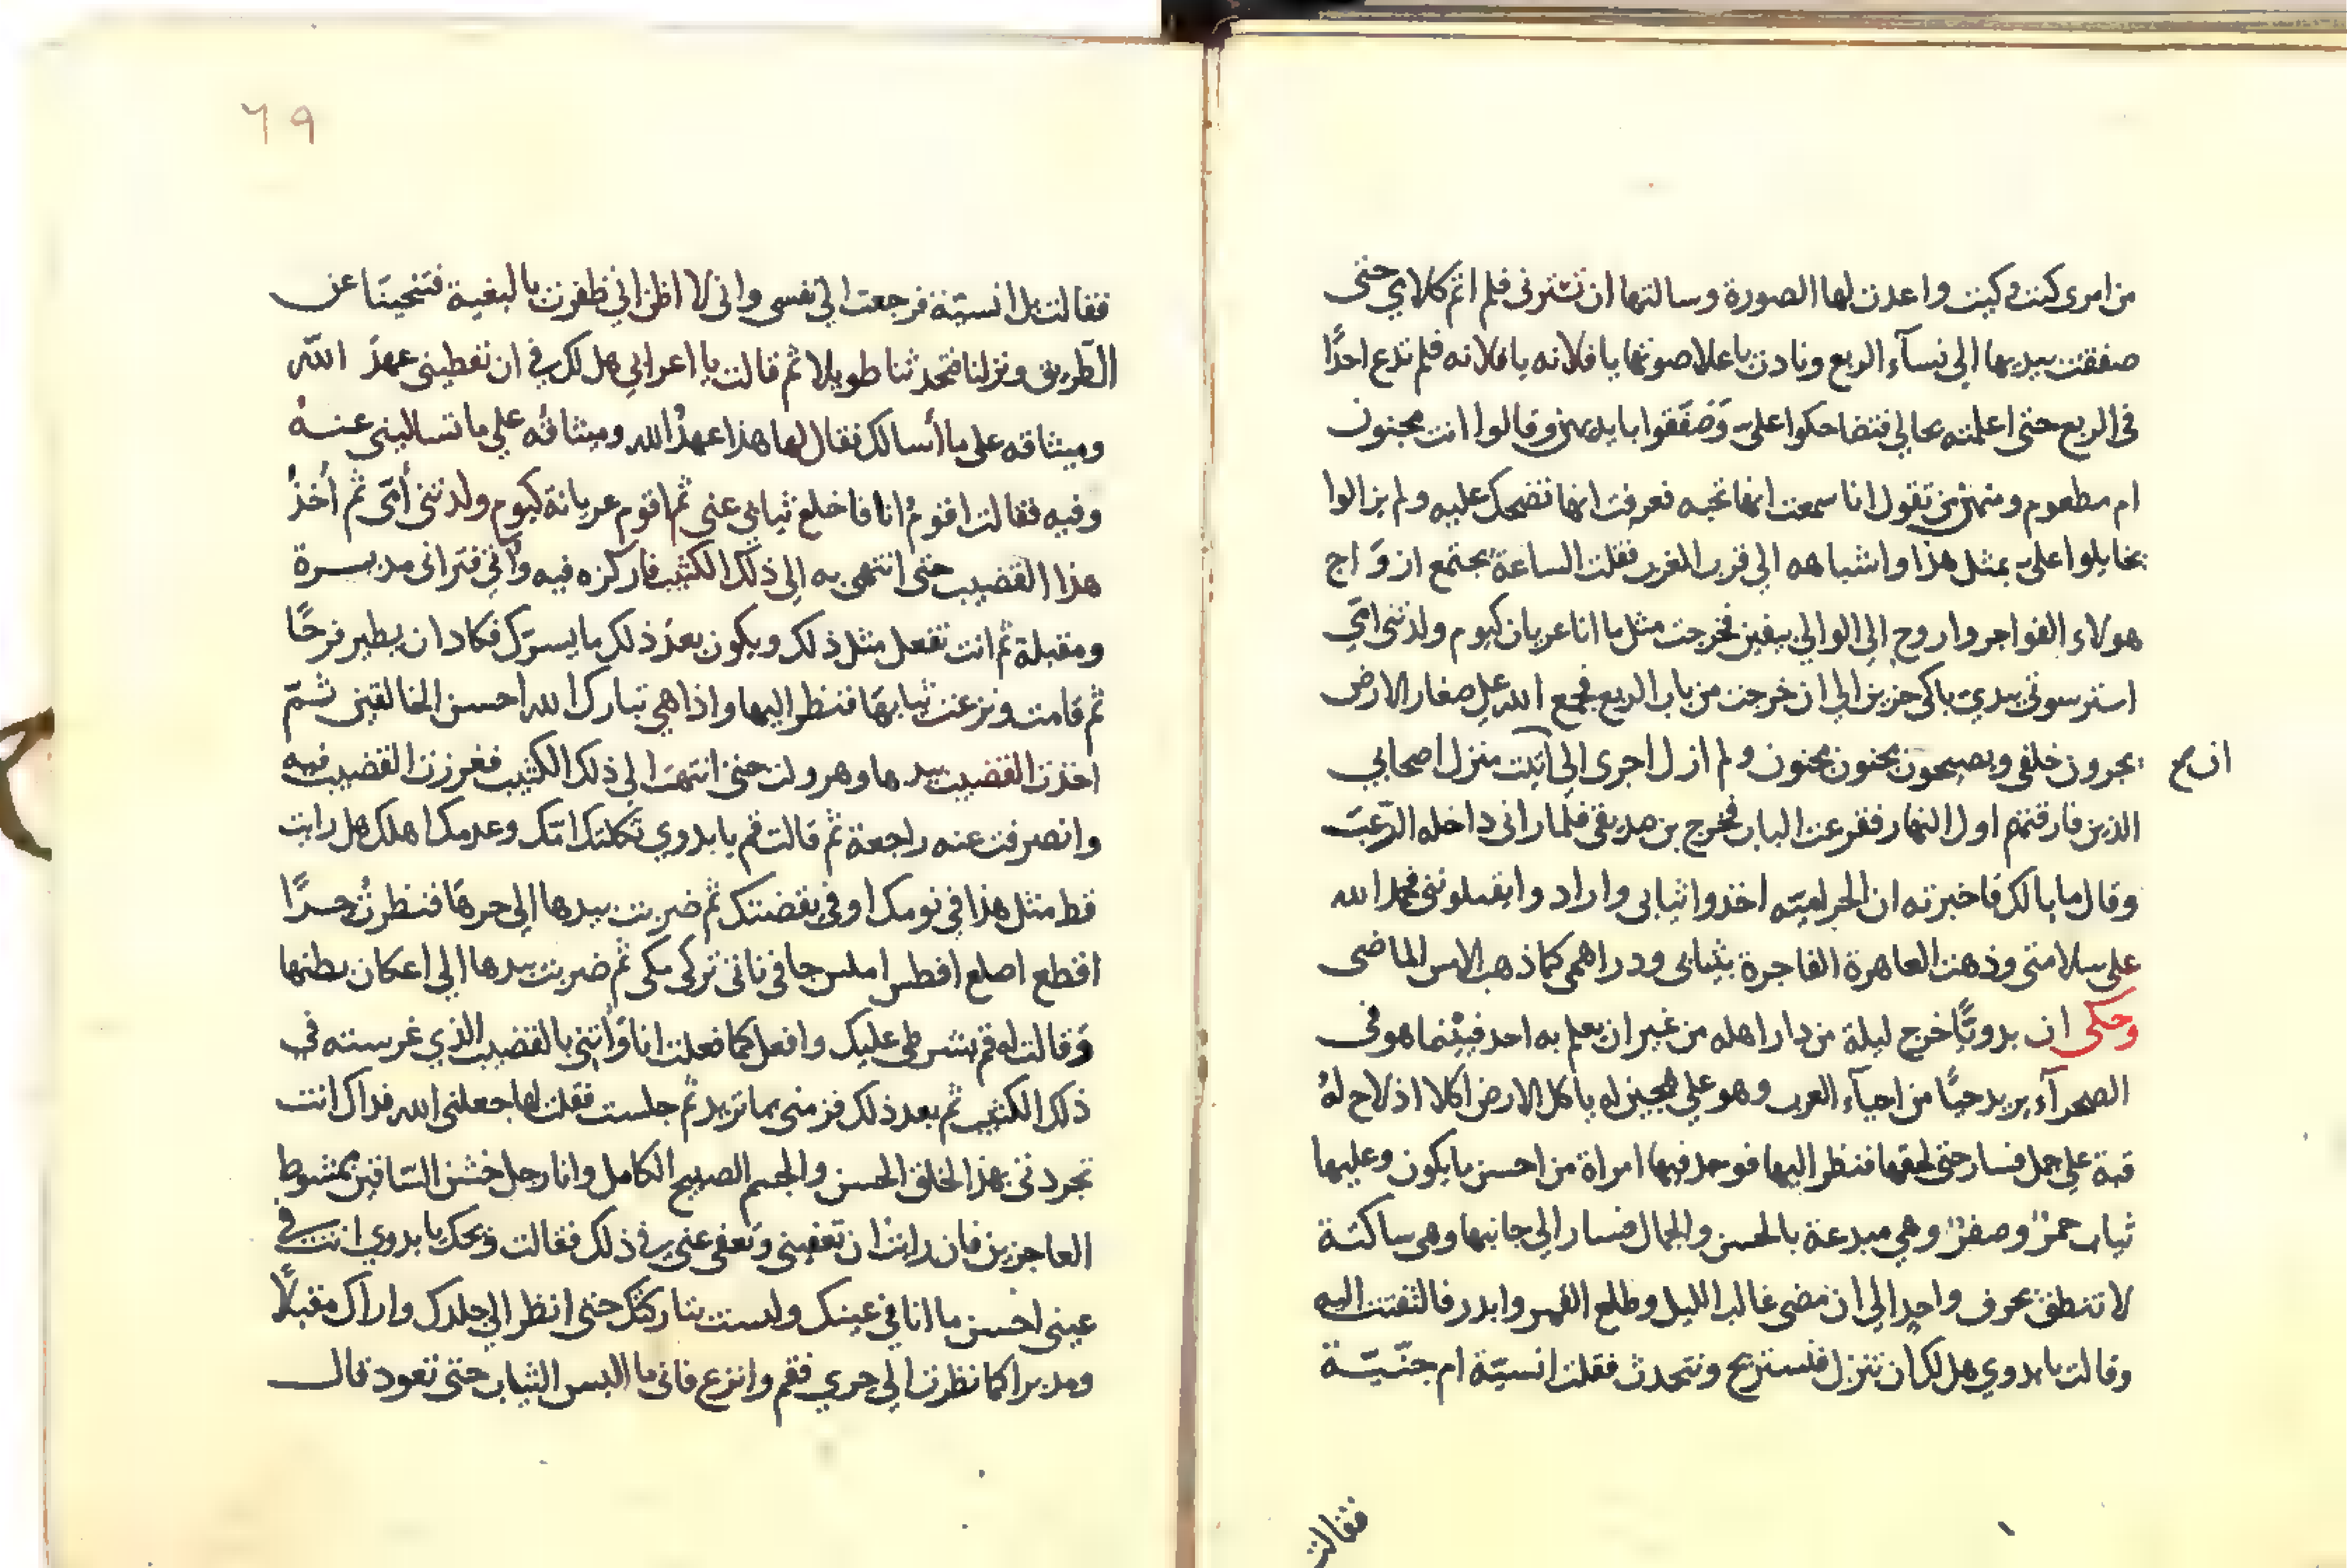 من امرى كيت وكيت واعدت لها الصورة وسالتها ان تسترنى فلم اتم كلامي حتى
صفقت بيديها الي نسآء الربع ونادت باعلا صوتها يا فلانه يا فلانه فلم تدع احدًا
فى الربع حتى اعلمته بحالي فتضاحكوا علىّ وَصَفّقوا بايديهن وقالوا انت مجنون
ام مطعوم ومنهن من تقول انا سمعت انها تحبه فعرفت انها تضحك عليه ولم يزالوا
يتخايلوا علىّ بمثل هذا واشباهه الي قرب المغرب فقلت الساعة يجتمع ازوَاج
هولاء الفواجر واروح الى الوالي بيقين فخرجت مثل ما انا عريان كيوم ولدتنى امّي
استر سوتى بيدىّ باكى حزين الي ان خرجت من باب الربع فجمع الله علىّ صغار الارض
يجرون خلفى ويصيحون مجنون مجنون ولم ازل اجرى الى ان اتيت منزل اصحابي
الذين فارقتهم اول النهار فقرعت الباب فخرج من صديقى فلما رانى داخله الرّعبَ
وقال ما بالك فاخبرته ان الحراميّه اخذوا ثيابى وارادوا يقتلوننى فحمد الله
على سلامتى وذهبت العاهرة الفاجرة بثيابى ودراهمى كما ذهب الامس الماضى
وحكى ان بدويًّا خرج ليلة من دار اهله من غير ان يعلم به احد فبينما هو فى
الصحرآء يريد حيًّا من احيآء العرب وهو على هجين له ياكل الارض اكلا اذ لاح لهُ
قبة على جمل فسار حتى لحقها فنظر اليها فوجد فيها امراة من احسن ما يكون وعليها
ثياب حمرٌ وصفرٌ وهي مبدعة بالحسن والجمال فسار الي جانبها وهى ساكتة
لا تنطق بحرف واحدٍ الي ان مضى غالب الليل وطلع القمر وابدر فالتفتت اليه
وقالت يا بدوي هل لك ان تنزل فنستريح ونتحدث فقلت انسيّة ام جنّيّة
فقالت
٦٩
فقالت بل انسيّة فرجعت الي نفسى وانى لا اظن اني ظفرت بالبغية فتنحينَا عن
الطّريق ونزلنا فتحدثنا طويلا ثم قالت يا اعرابي هل لك في ان تعطينى عهدَ اللّه
وميثاقه على ما أسالك فقال لها هذا عهدُ الله وميثاقُه علي ما تسالينى عنــهُ
وفيه فقالت اقومُ انا فاخلع ثيابي عنى ثم اقوم عريانة كيوم ولدتنى أمّى ثم أخذُ
هذا القضيب حتى انتهى به الى ذلك الكثيب فاركزه فيه وأتي فترانى مدبـــرة
ومقبلة ثم انت تفعل مثل ذلك ويكون بعدَ ذلك ما يسرّك فكاد ان يطير فرحًا
ثم قامت ونزعت ثيابهَا فنظر اليها واذا هي تبارك الله احسن الخالقين ثــمّ
اخذت القضيب بيدها وهرولت حتى انتهت الى ذلك الكثيب فغرزت القضيب فيه
وانصرفت عنه راجعة ثم قالت قم يا بدوي ثكلتك امّك وعدمك اهلك هل رايت
قط مثل هذا في نومك او في يقضتك ثم ضربت بيدها الي حرهَا فنظرتُ حــرًا
اقطع اصلع افطس املس جافى ناتى تركى مكى ثم ضربت بيدها الي اعكان بطنها
وَقالت له قم بشرطى عليك وافعل كما فعلت انا وَأتنى بالقضيب الذي غرسته فى
ذلك الكثيب ثم بعد ذلك فزمنى بما تريد ثم جلست فقلت لها جعلنى الله فداك انت
تجردتى بهذا الخلق الحسن والجسم الصبيح الكامل وانا رجل خشن السّاقين ممشوط
العاجزين فان رايت ان تعفينى وتعفى عنى في ذلك فقالت ويحك يا بدوي انت في
عينى احسن ما انا في عينك ولست بتاركتك حتى انظر الي جلدك واراك مقبلًا
ومدبرا كما نظرت الي حري فقم وانزع فانى ما البس الثياب حتى تعود قال